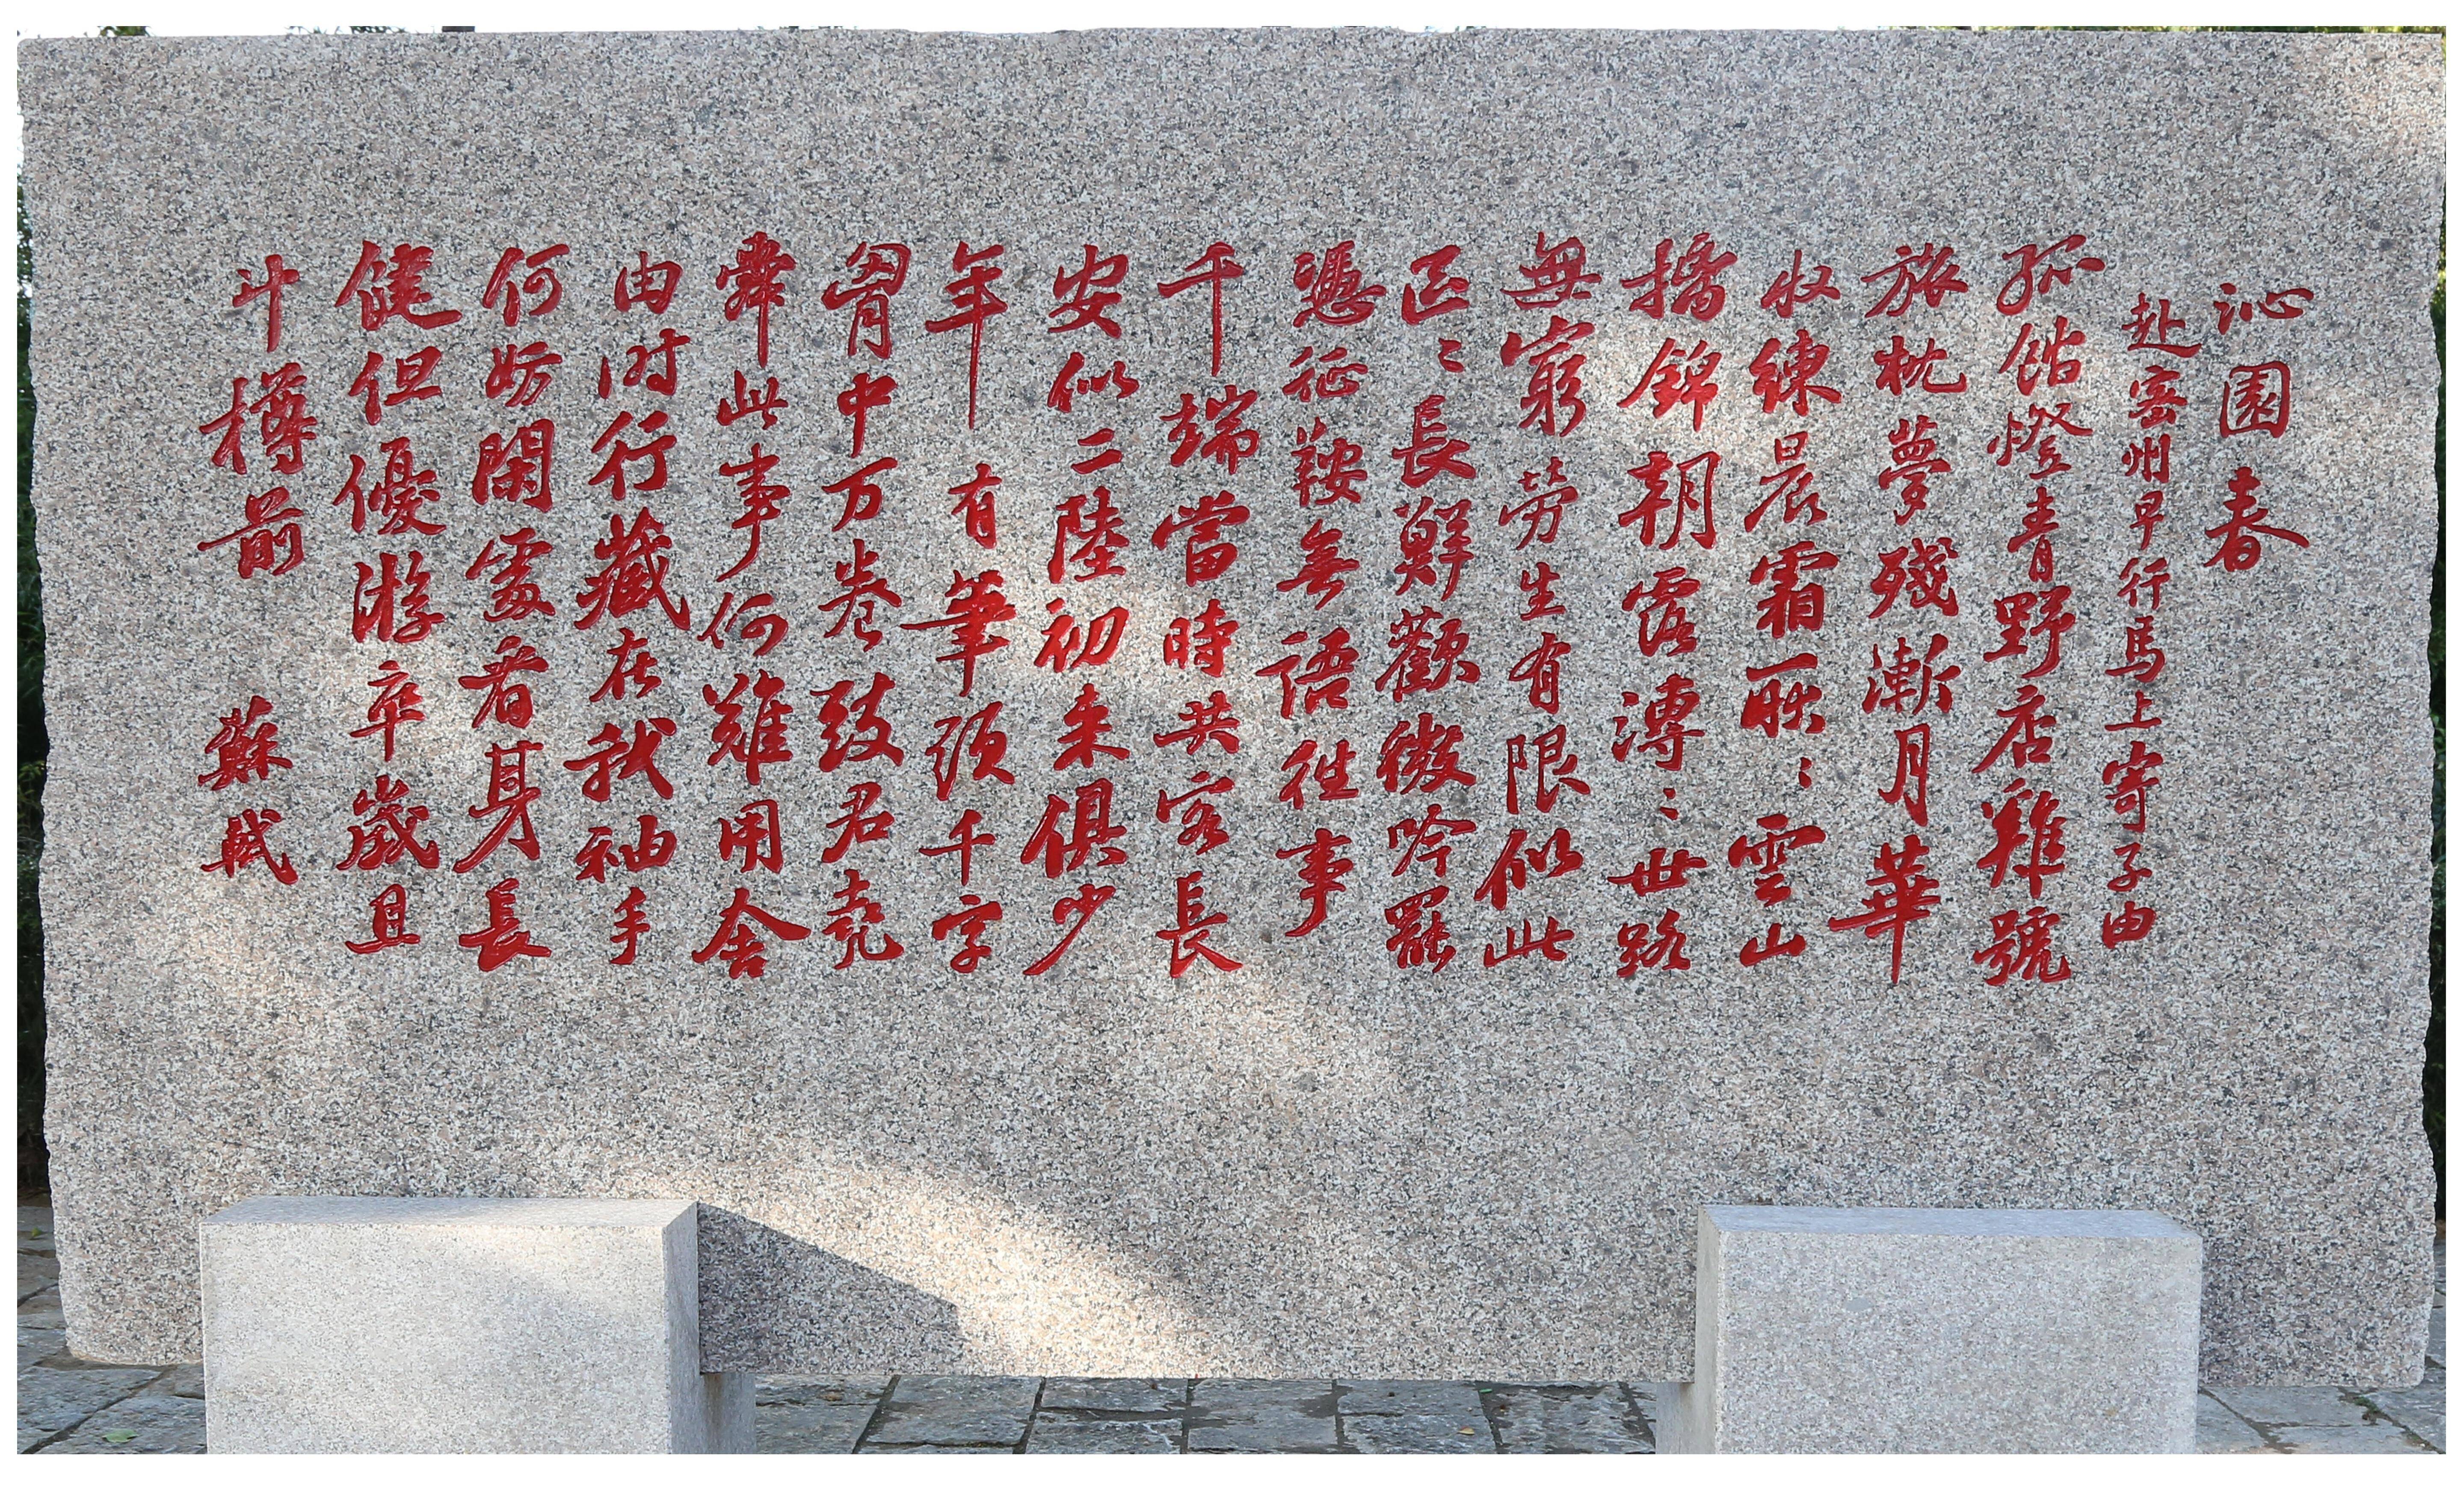 沁園春
赴密州早行馬上寄子由
孤館燈青野店雞號
旅枕夢殘漸月華
收練晨霜耿〻雲山
摛錦朝露漙〻世路
無窮勞生有限似此
區〻長鮮歡微吟罷
憑征鞍無語往事
千端當時共客長
安似二陸初來俱少
年有筆頭千字
胸中万卷致君堯
舜此事何難用舍
由时行藏在我袖手
何妨閑處看身長
健但優游卒歲且
斗樽前 蘇軾